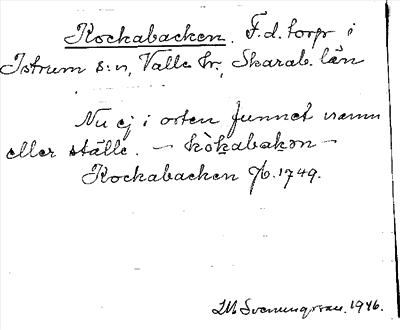 Kockabacken. F.d. torp i
Istrum s:n, Valle hr., Skarab. län
Nu ej i orten funnet namn
eller ställe. – kòkabakən –
Kockabacken Jb. 1749.
IM Svenungsson. 1946.